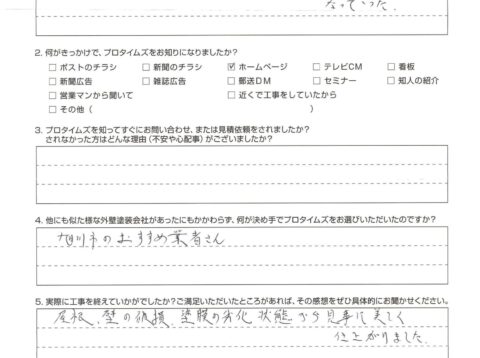 なっていった.
2. 何がきっかけで、プロタイムズをお知りになりましたか?
□ ポストのチラシ □ 新聞のチラシ ☑ ホームページ □ テレビCM □ 看板
□ 新聞広告 □ 雑誌広告 □ 郵送DM □ セミナー □ 知人の紹介
□ 営業マンから聞いて □ 近くで工事をしていたから
□ その他( )
3. プロタイムズを知ってすぐにお問い合わせ、または見積依頼をされましたか?
されなかった方はどんな理由(不安や心配事)がございましたか?
4. 他にも似た様な外壁塗装会社があったにもかかわらず、何が決め手でプロタイムズをお選びいただいたのですか?
旭川市のおすすめ業者さん
5. 実際に工事を終えていかがでしたか?ご満足いただいたところがあれば、その感想をぜひ具体的にお聞かせください。
屋根、壁の破損、塗膜の劣化状態から見事に美しく
仕上がりました.